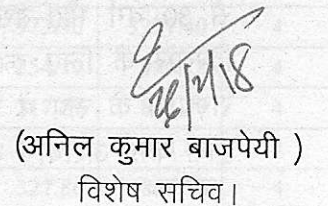 26/4/18
(अनिल कुमार बाजपेयी )
विशेष सचिव।